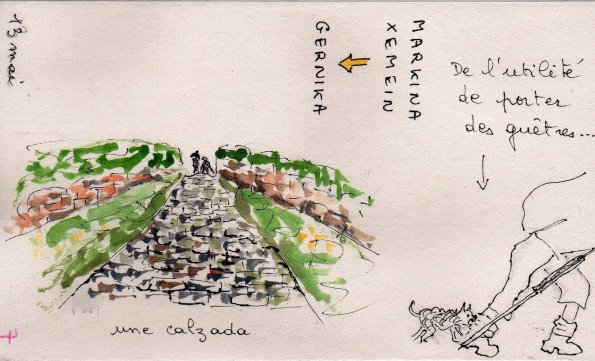 13 mai
MARKINA
XEMEIN
GERNIKA
De l'utilité
de porter
des guêtres...
une calzada